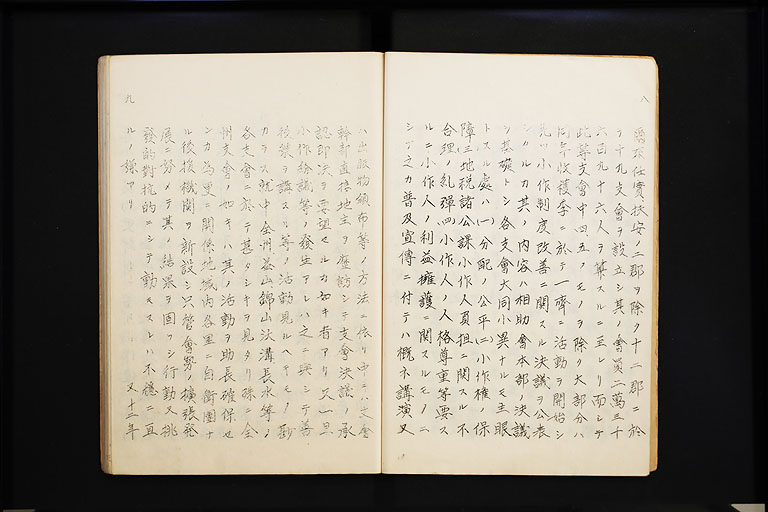 八
爾後任實扶安ノ二郡ヲ除ク十二郡ニ於
テ十九支會ヲ設立シ其ノ會員二萬三千
六百九十六人ヲ算スルニ至レリ而シテ
此等支會中四五ノモノヲ除ク大部分ハ
同年收穫季ニ於テ一齊ニ活動ヲ開始シ
先ツ小作制度改善ニ關スル決議ヲ公表
シタルカ其ノ内容ハ相助會本部ノ決議
ヲ基礎トシ各支會大同小異ナルモ主眼
トスル處ハ(一)分配ノ公平(二)小作權ノ保
障(三)地稅諸公課小作人負担ニ關スル不
合理ノ糺彈(四)小作人ノ人格尊重等要ス
ルニ小作人ノ利益擁護ニ關スルモノニ
シテ之カ普及宣傳ニ付テハ概ネ講演又
九
ハ出版物頒布等ノ方法ニ依リ中ニハ支會
幹部直接地主ヲ歷訪シテ支會決議ノ承
認卽決ヲ要望セルカ如キ者アリ又一旦
小作紛議等ノ發生アレハ之ニ投シテ善
後策ヲ講スル等ノ活動見ルヘキモノ尠
カラス就中全州益山錦山沃溝長水等ノ
各支會ニ於テ甚タシキヲ見タリ殊ニ全
州支會ノ如キハ其ノ活動ヲ助長確保セ
ンカ爲更ニ關係地域内各里ニ自衛團ナ
ル後援機關ヲ新設シ只管會勢ノ擴張發
展ニ努メテ其ノ結果ヲ固ツシ行動又挑
發的對抗的ニシテ動モスレハ不穩ニ亘
ルノ嫌アリ 又十二年